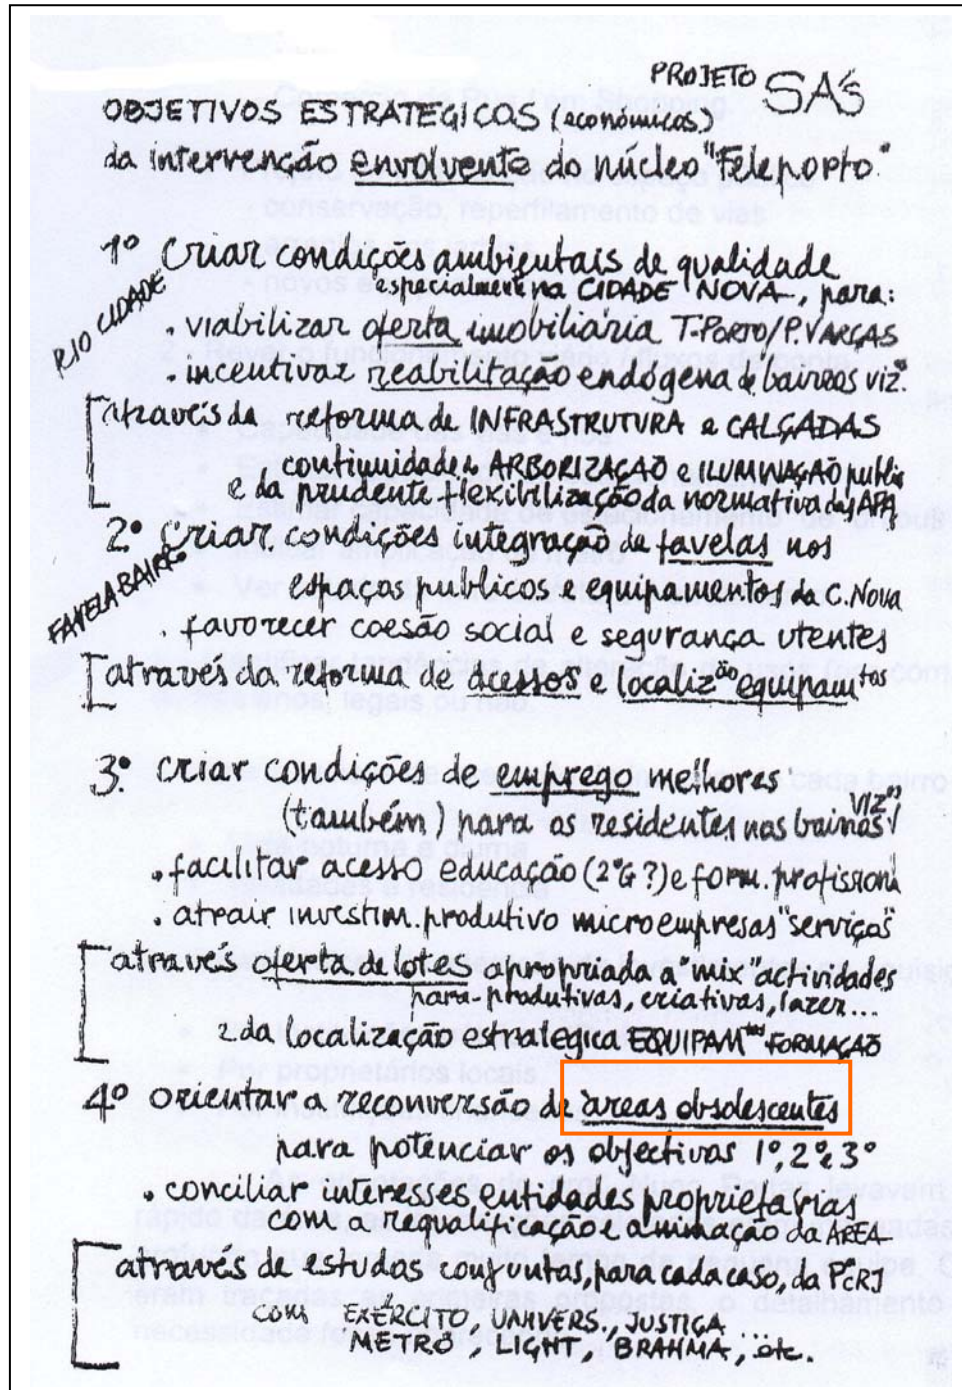 PROJETO SAS
OBJETIVOS ESTRATEGICOS (económicos)
da intervenção envolvente do núcleo "Teleporto"
1º Criar condições ambientais de qualidade
especialmente na CIDADE NOVA, para:
RIO CIDADE
. viabilizar oferta imobiliária T.PORTO/P.VARGAS
. incentivar reabilitação endógena de bairros viz.
através da reforma de INFRASTRUTURA e CALÇADAS
, continuidade ARBORIZAÇÃO e ILUMINAÇÃO public
e da prudente flexibilização da normativa da APA
2º Criar condições integração de favelas nos
FAVELA-BAIRRO
espaços publicos e equipamentos da C.Nova
. favorecer coesão social e segurança utentes
através da reforma de acessos e localizção equipamtos
3º criar condições de emprego melhores
(também) para os residentes nos bairros vizos
. facilitar acesso educação (2ºG?) e form. profissional
. atrair investim. produtivo microempresas "serviços"
através oferta de lotes apropriada a "mix" actividades
para-produtivas, criativas, lazer...
e da localização estrategica EQUIPAMtos FORMAÇÃO
4º orientar a reconversão de àreas obsolescentes
para potenciar os objectivos 1º, 2º e 3º
. conciliar interesses entidades proprietárias
com a requalificação e animação da AREA
através de estudos conjuntos, para cada caso, da PCRJ
com EXÉRCITO, UNIVERS., JUSTIÇA ...
METRÔ, LIGHT, BRAHMA, etc.